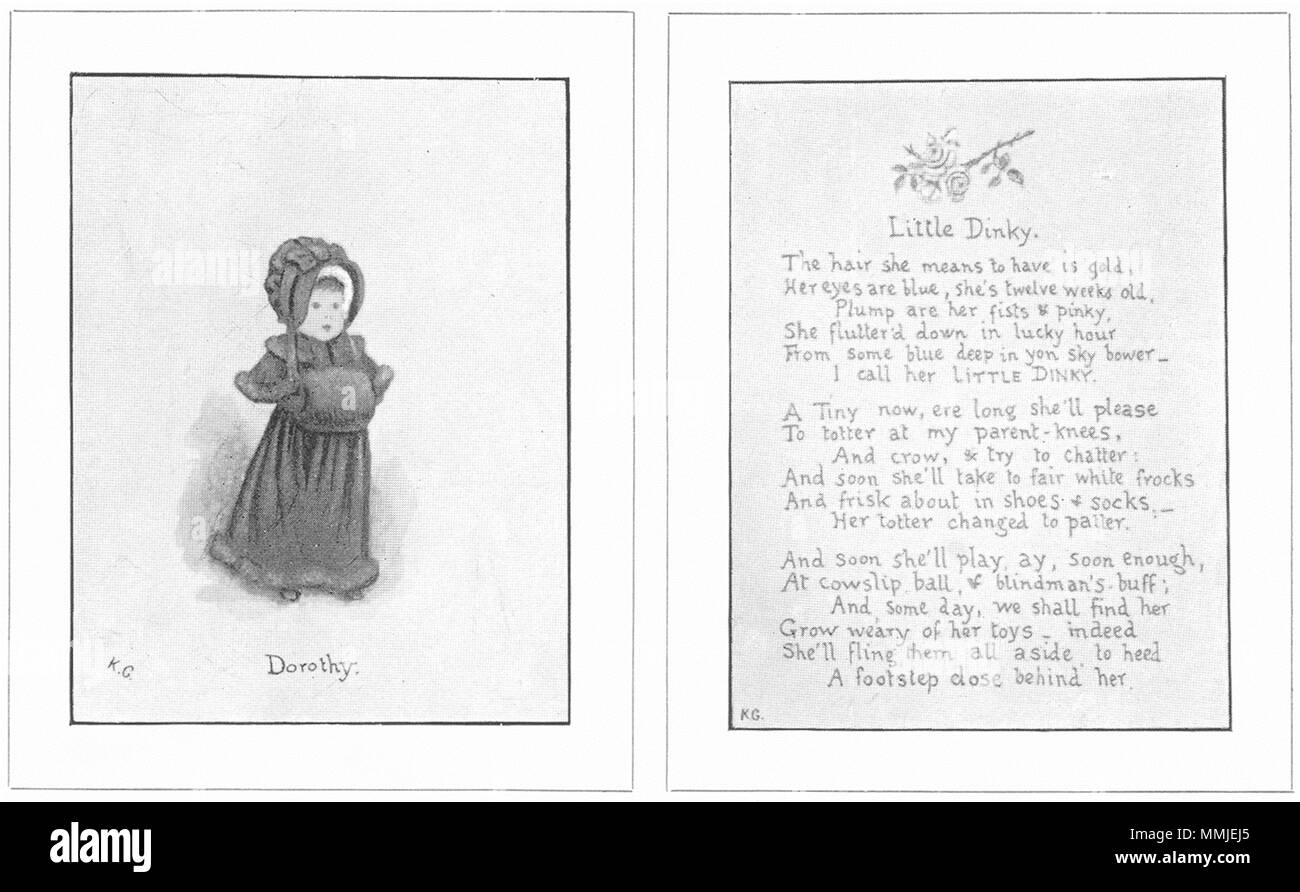 K.G.
Dorothy.
Little Dinky.
The hair she means to have is gold,
Her eyes are blue, she's twelve weeks old,
Plump are her fists & pinky,
She flutter'd down in lucky hour
From some blue deep in yon sky bower_
I call her LITTLE DINKY.
A Tiny now, ere long she'll please
To totter at my parent-knees,
And crow, & try to chatter:
And soon she'll take to fair white frocks
And frisk about in shoes & socks_
Her totter changed to patter.
And soon she'll play, ay, soon enough,
At cowslip ball, & blindman's-buff;
And, some day, we shall find her
Grow weary of her toys_ indeed
She'll fling them all aside to heed
A footstep close behind her.
KG.
alamy
a
a
a
alamy
www.alamy.com
MMJEJ5